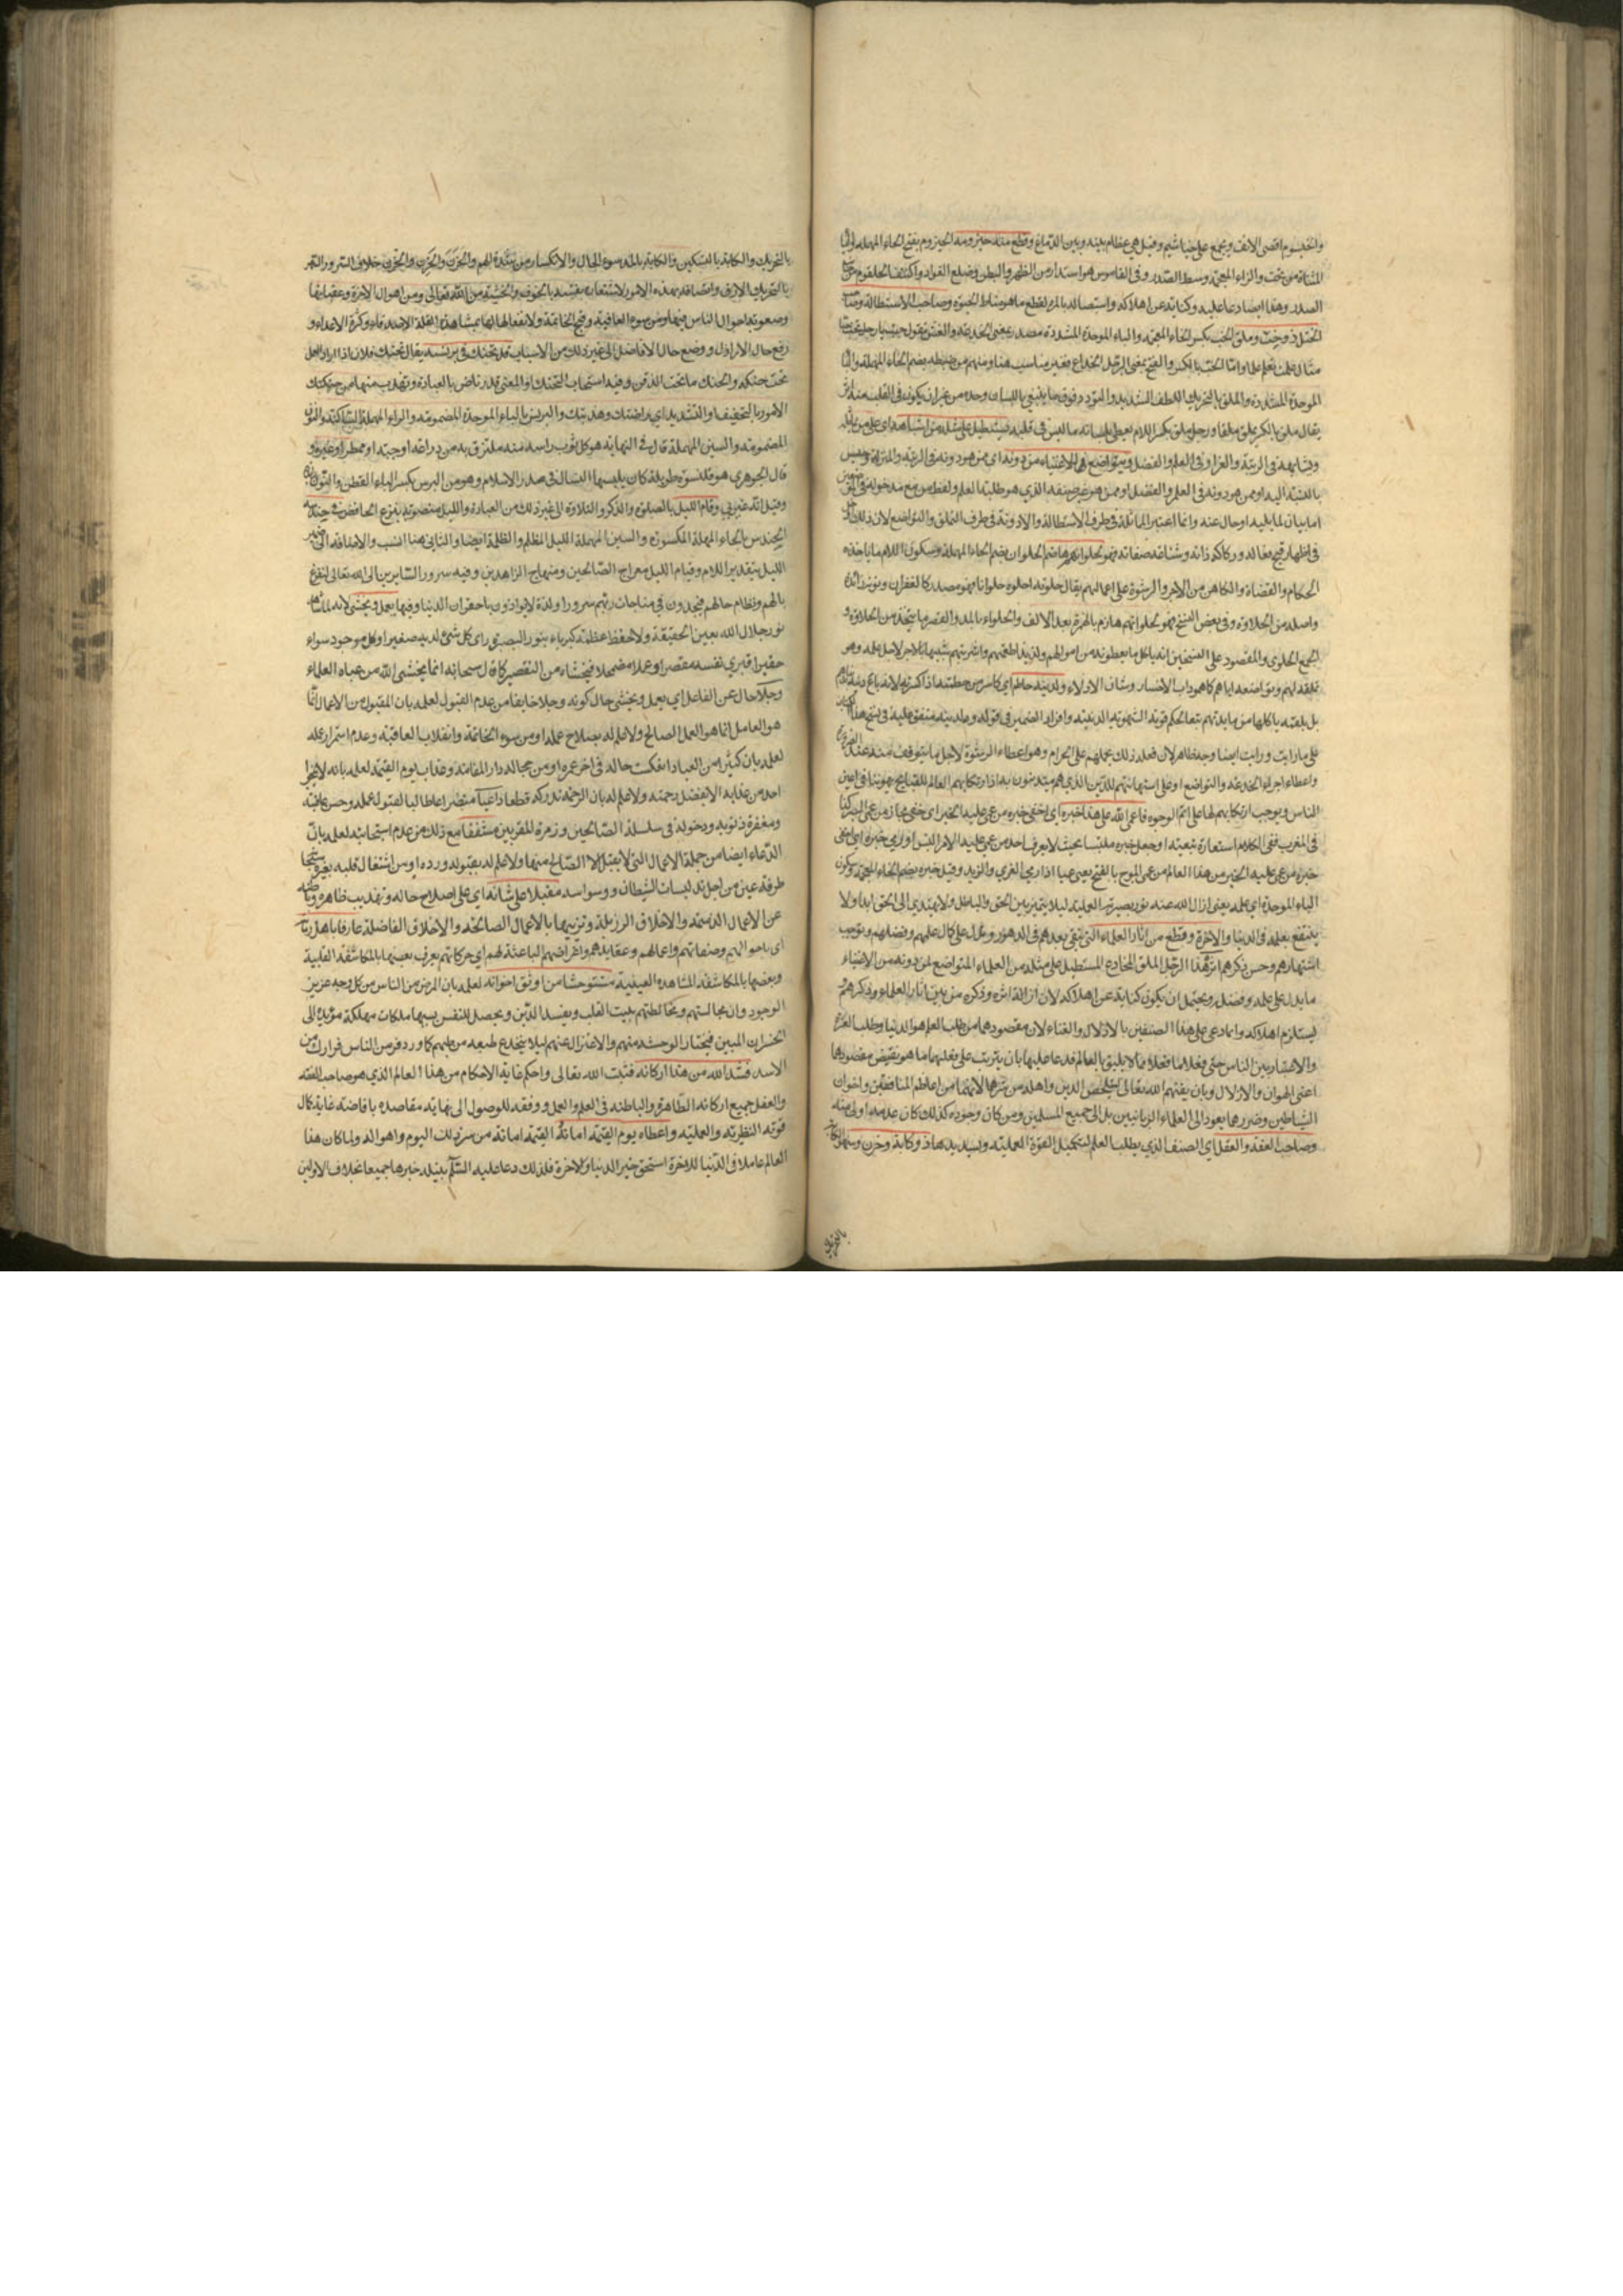 والخيشوم اقصى الانف ويجمع على خياشيم وقيل هي عظام بينه وبين الدماغ وقطع منه حيزومه الحيزوم بفتح الحاء المهملة والياء
المثناة من تحت والزاء المعجمة وسط الصدر وفي القاموس هو استدار من الظهر والبطن وضلع الفواد واكتنف الحلقوم من
الصدر وهذا ايضا دعا عليه وكناية عن اهلاكه واستيصاله بالمرة لقطع ما هو مناط الحيوة وصاحب الاستطالة
الختل ذو خب وملق الخب بكسر الخاء المعجمة والباء الموحدة المشددة مصدر بمعنى الخدعة والغش تقول خببت يا رجل
مثال علمت تعلم علما واما الخب بالكسر والفتح بمعنى الرجل الخداع فغير مناسب هنا ومنهم من ضبطه بضم الحاء المهملة والباء
الموحدة المشددة والملق بالتحريك اللطف الشديد والتودد فوق ما ينبغي باللسان وحده من غير ان يكون في القلب منه
يقال ملق بالكسر يملق ملقا ورجل ملق بكسر اللام يعطي بلسانه ما ليس في قلبه فيستطيل على مثله من اشباهه اي على من
ويشابهه في الرتبة والعزاز في العلم والفضل ويتواضع للاغنياء من دونه اي من هو دونه في الرتبة والمنزلة
بالنسبة اليه او ممن هو دونه في العلم والفضل او ممن هو غير صنفه الذي هو طلبة العلم ولفظ من مع مدخوله في
اما بيان لما يليه او حال عنه وانما اعتبر المماثلة في طرف الاستطالة والادونية في طرف التملق والتواضع لان ذلك
في اظهار قبح فعاله وركاكة ذاته وشناعة صفاته فهو لحلوائهم هاضم الحلوان بضم الحاء المهملة وسكون اللام ما ياخذه
الحكام والقضاة والكاهن من الاجر والرشوة على اعمالهم يقال حلوته احلوه حلوانا فهو مصدر كالغفران ونونه زائدة
واصله من الحلاوة وفي بعض النسخ فهو لحلوائهم هازم بالهمزة بعد الالف والحلواء بالمد والقصر ما يتخذ من الحلاوة و
الجمع الحلاوى والمقصود على النسختين انه ياكل ما يعطونه من اموالهم ولذيذ اطعمتهم واشربتهم شبيها بالاجر لاجل عمله وهو
تملقه لهم وتواضعه اياهم كما هو داب الاخسار وشان الاذلاء ولدينه حاطم اي كاسر من حطمته اذا كسرته
بل بلقمة ياكلها من مايدتهم تبعا لحكم قوته الشهوية الدنية وافراد الضمير في قوله ولدينه متفق عليه في نسخ هذا
على ما رايت ورايت ايضا وجه ظاهر لان فعله ذلك يحملهم على الحرام وهو اعطاء الرشوة لاجل ما يتوقف
واعطاء اجراء الخدعة والتواضع او على استهانتهم للدين الذي هم متدينون به اذ ارتكاب العالم للقبايح يهونها في اعين
الناس ويوجب ارتكابهم لها على اتم الوجوه فاعمى الله على هذا خبره اي اخفى خبره من عمي عليه الخبر اي خفي مجاز من عمى البصر كذا
في المغرب ففي الكلام استعارة تبعية او جعل خبره ملتبسا بحيث لا يعرف احد من عمي عليه الامر التبس او رمى خبره
خبره من عمي عليه الخبر من هذا العالم من عمى الموج بالفتح يعمي عميا اذا رمى القذى والزبد وقيل خبره بضم الخاء المعجمة وسكون
الباء الموحدة اي علمه يعني ازال الله عنه نور بصيرته العلمية ليلا يتميز بين الحق والباطل ولا يهتدي الى الحق ابدا ولا
ينتفع بعلمه في الدنيا والاخرة وقطع من اثار العلماء التي تبقى بعدهم في الدهور وتدل على كمال علمهم وفضلهم وتوجب
اشتهارهم وحسن ذكرهم اثره هذا الرجل الملق المخادع المستطيل على مثله من العلماء المتواضع لمن دونه من الاغنياء
ما يدل على علمه وفضله ويحتمل ان يكون كناية عن اهلاكه لان ازالة اثره وذكره من بين اثار العلماء وذكرهم
يستلزم اهلاكه وانما دعى على هذا الصنفين بالاذلال والفناء لان مقصودهما من طلب العلم هو الدنيا وطلب العزة
والاعتبار بين الناس حتى فعلا ما فعلا مما لا يليق بالعالم فدعا عليهما بان يترتب على فعليهما ما هو نقيض مقصودهما
اعني الهوان والاذلال وبان يفنيهم الله تعالى ليخلص الدين واهله من شرهما لانهما من اعاظم المنافقين واخوان
الشياطين وضررهما يعود الى العلماء الربانيين بل الى جميع المسلمين ومن كان وجوده كذلك كان عدمه اولى منه
وصاحب الفقه والعقل اي الصنف الذي يطلب العلم لتكميل القوة العملية وتسديدها ذو كابة وحزن وسهر
بالتحريك
بالتحريك والكابة بالتسكين والكابة بالمد سوء الحال والانكسار من شدة الهم والحزن والحزن والحزن خلاف السرور والسهر
بالتحريك الارق واتصافه بهذه الامور لاشتغاله بنفسه بالخوف والخشية من الله تعالى ومن اهوال الاخرة وعقباتها
وصعوبة احوال الناس فيها ومن سوء العاقبة وقبح الخاتمة ولانفعالها بمشاهدة لقلة الاصدقاء وكثرة الاعداء و
رفع حال الاراذل ووضع حال الافاضل الى غير ذلك من الاسباب قد تحنك في برنسه يقال تحنك فلان اذا ادار العمامة
تحت حنكه والحنك ما تحت الذقن وفيه استحباب التحنك او المعنى قد ارتاض بالعبادة وتهذب منها من حنكتك
الامور بالتخفيف او التشديد اي راضتك وهذبتك والبرنس بالباء الموحدة المضمومة والراء المهملة الساكنة والنون
المضمومة والسين المهملة قال في النهاية هو كل ثوب راسه منه ملتزق به من دراعة او جبة او ممطر او غيره و
قال الجوهري هو قلنسوة طويلة كان يلبسها النساك في صدر الاسلام وهو من البرس بكسر الباء القطن والنون زائدة
وقيل انه غير عربي وقام الليل بالصلوة والذكر والتلاوة الى غير ذلك من العبادة والليل منصوب بنزع الخافض في حندسه
الحندس بالحاء المهملة المكسورة والسين المهملة الليل المظلم والظلمة ايضا والثاني هنا انسب والاضافة الى ضمير
الليل بتقدير اللام وقيام الليل معراج الصالحين ومنهاج الزاهدين وفيه سرور السايرين الى الله تعالى لتفرغ
بالهم ونظام حالهم فيجدون في مناجات ربهم سرورا ولذة لا يوازنون باحقران الدنيا وفيها يعمل ويخشى لانه لما شاهد
نور جلال الله بعين الحقيقة ولاحظ عظمة كبرياءه بنور البصيرة راى كل شيء لديه صغيرا وكل موجود سواه
حقيرا فيرى نفسه مقصرا وعمله مضمحلا فيخشاه من التقصير كما قال سبحانه انما يخشى الله من عباده العلماء
وجلا حال عن الفاعل اي يعمل ويخشى حال كونه وجلا خايفا من عدم القبول لعلمه بان المقبول من الاعمال انما
هو العمل الصالح ولا علم له بصلاح عمله او من سوء الخاتمة وانقلاب العاقبة وعدم استمرار عمله
لعلمه بان كثيرا من العباد انعكست حاله في اخر عمره او من حجاله دار المقامة وعذاب يوم القيمة لعلمه بانه لا ينجو
احد من عذابه الا بفضل رحمته ولا علم له بان الرحمة تدركه قطعا داعيا متضرعا طالبا لقبول عمله وحسن عاقبته
ومغفرة ذنوبه ودخوله في سلسلة الصالحين وزمرة المقربين مشفقا مع ذلك من عدم استجابته لعلمه بان
الدعاء ايضا من جملة الاعمال التي لا يقبل الا الصالح منها ولا علم له بقبوله ورده او من اشتغال قلبه بغيره
طرفة عين من اجل تدليسات الشيطان ووسواسه مقبلا على شانه اي على اصلاح حاله وتهذيب ظاهره وباطنه
عن الاعمال الذميمة والاخلاق الرزيلة وتزيينها بالاعمال الصالحة والاخلاق الفاضلة عارفا باهل زمانه
اي باحوالهم وصفاتهم واعمالهم وعقايدهم واغراضهم الباعثة لهم اي حركاتهم يعرف بعضها بالمكاشفة القلبية
وبعضها بالمكاشفة المشاهدة العينية مستوحشا من اوثق اخوانه لعلمه بان المرضى من الناس من كل وجه عزيز
الوجود وان مجالستهم ومخالطتهم يميت القلب ويفسد الدين ويحصل للنفس بسببها ملكات مهلكة مؤدية الى
الخسران المبين فيختار الوحشة منهم والاعتزال عنهم ليلا ينخدع طبعه من طبعهم كما ورد فر من الناس فرارك من
الاسد فشد الله من هذا اركانه فثبت الله تعالى واحكم غاية الاحكام من هذا العالم الذي هو صاحب الفقه
والعقل جميع اركانه الظاهرة والباطنة في العلم والعمل ووفقه للوصول الى نهاية مقاصده بافاضة غاية كمال
قوته النظرية والعملية واعطاه يوم القيمة امانه القيمة امانة من شر ذلك اليوم واهواله ولما كان هذا
العالم عاملا في الدنيا للاخرة استحق خير الدنيا والاخرة فلذلك دعا عليه السلام بنيله خيرها جميعا بخلاف الاولين